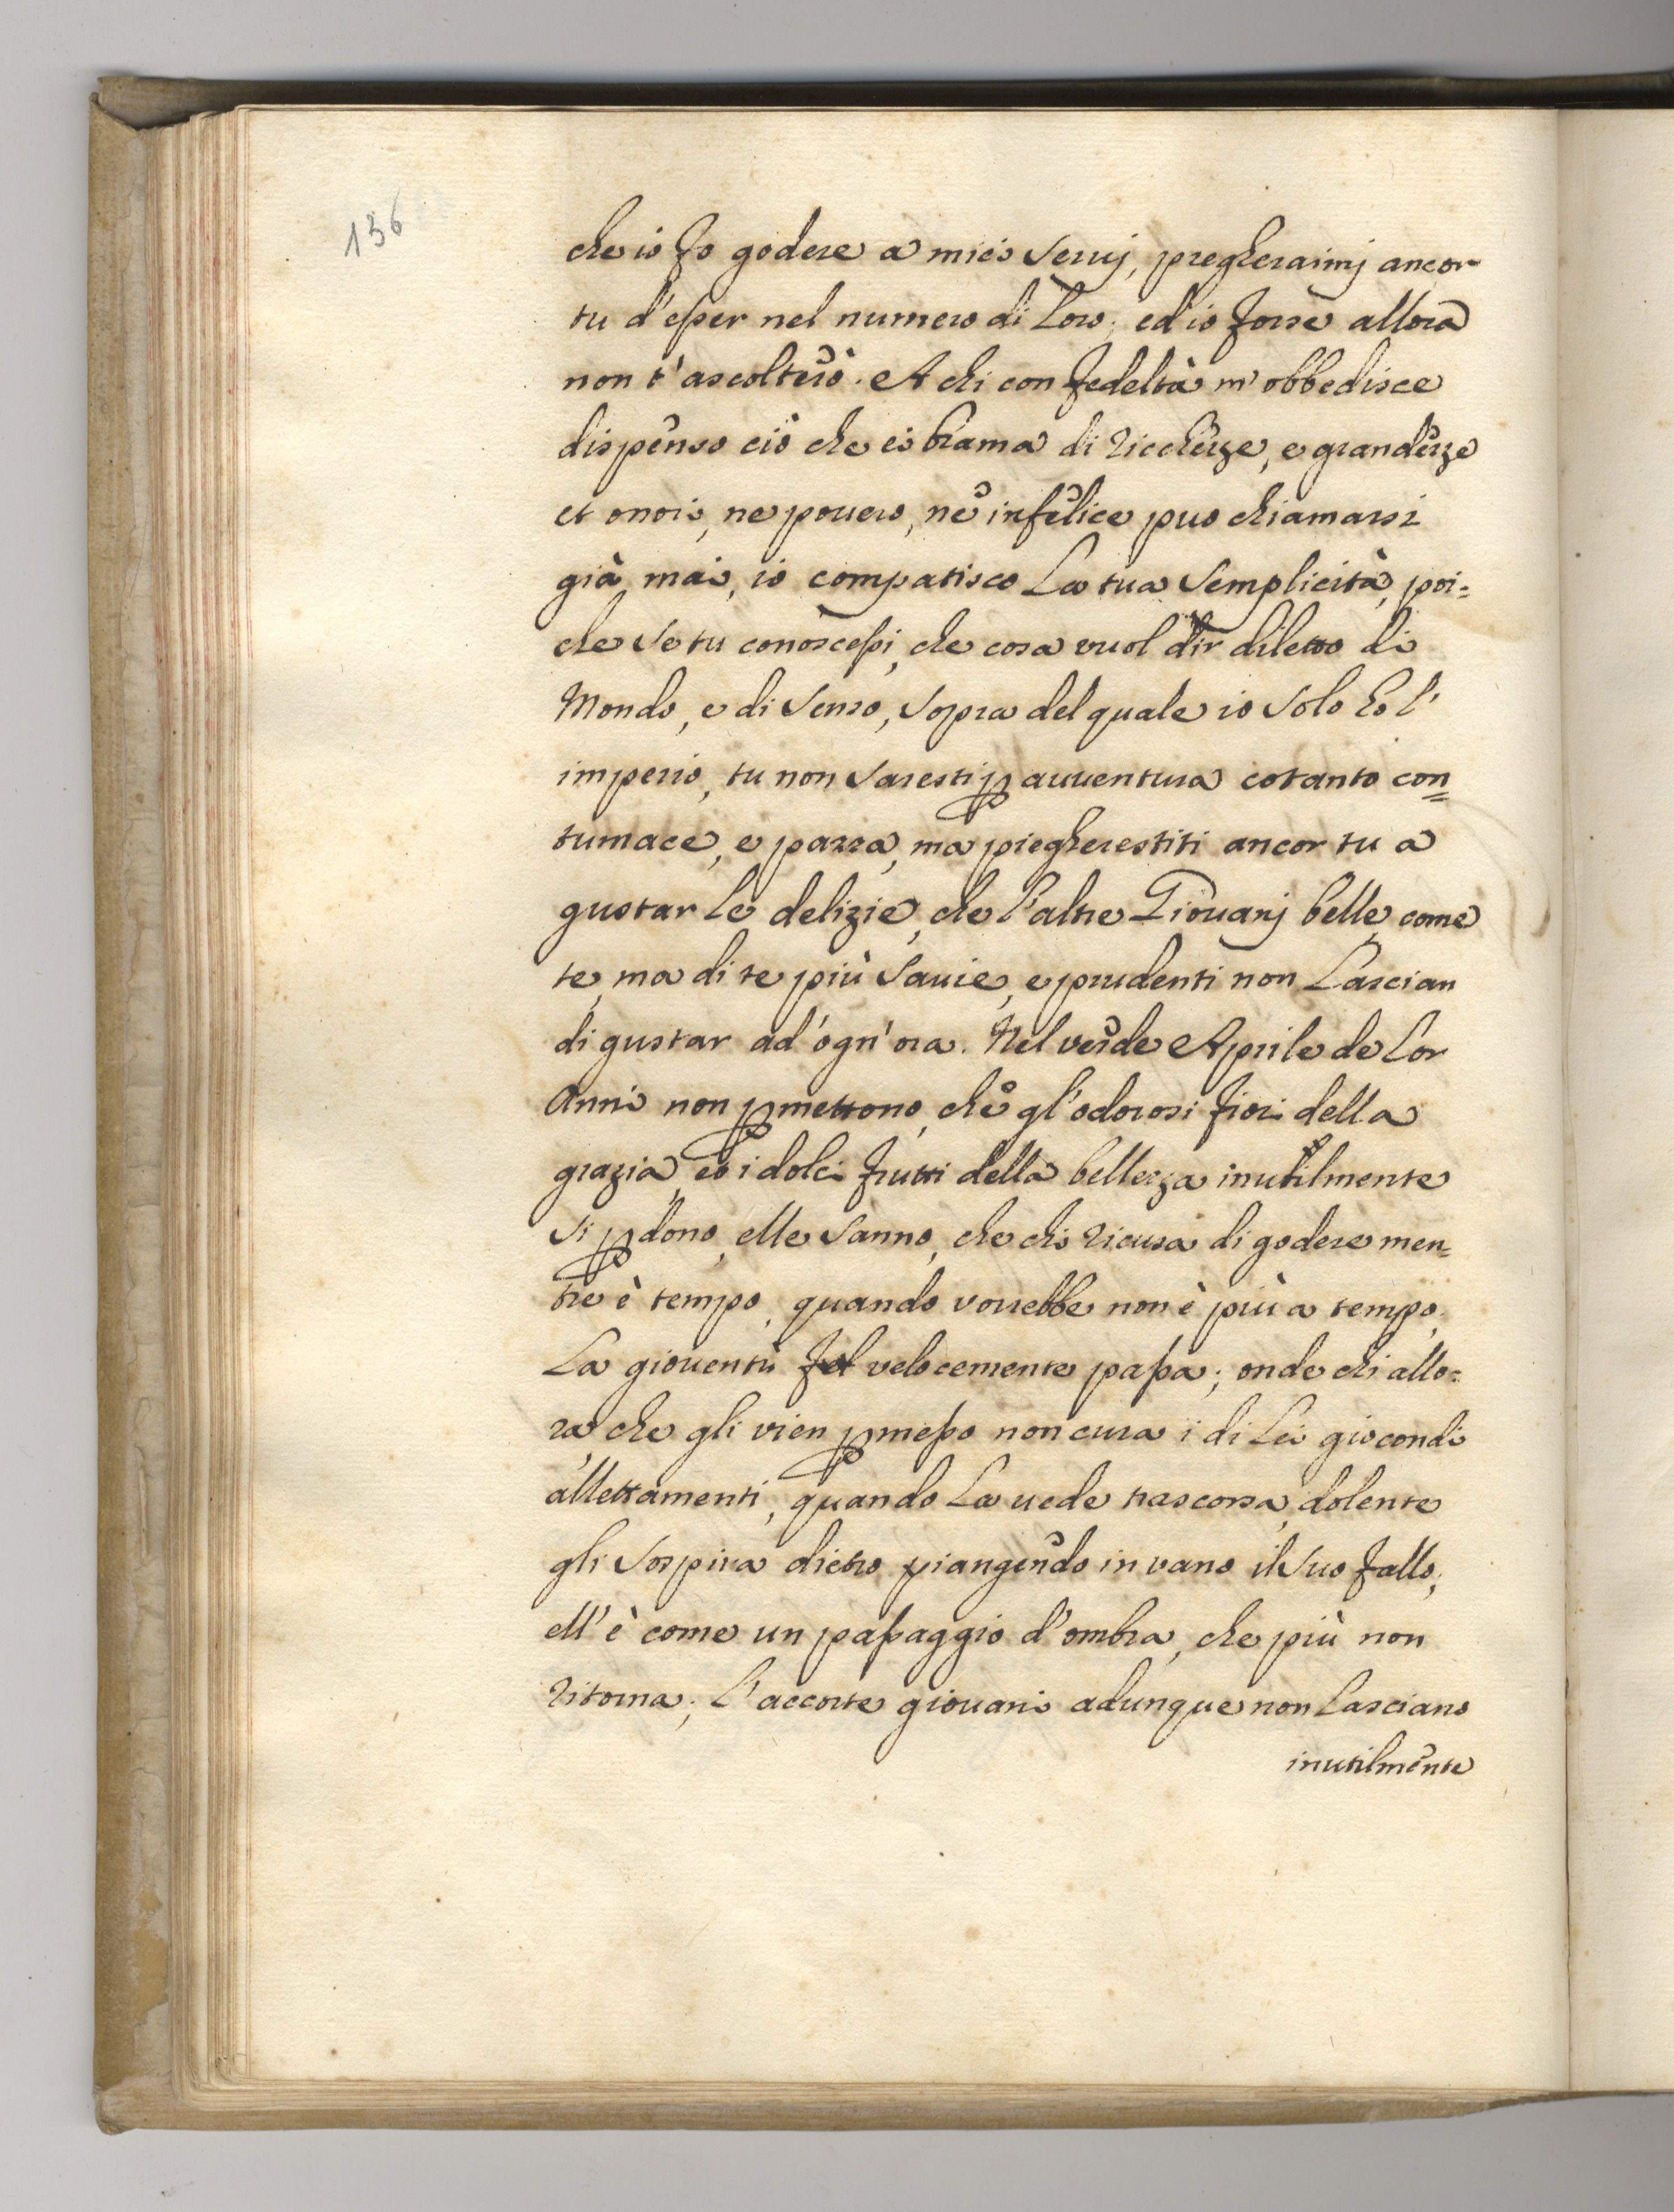 136
che io fo godere a miei Seruj, pregheraimj ancor
tu d'esser nel numero di Loro; ed io forse allora
non t'ascolterò. A chi con fedeltà m'obbedisce
dispenso ciò che ei brama di ricchezze, e grandezze
et onori, ne pouero, nè infelice puo chiamarsi
già mai, io compatisco La tua Semplicità, poi=
che Se tu conoscessi, che cosa vuol dir diletto di
Mondo, e di Senso, Sopra del quale io Solo ho l'
imperio, tu non Saresti p auuentura cotanto con=
tumace, e pazza, ma piegherestiti ancor tu a
gustar le delizie, che l'altre Giouanj belle come
te, ma di te più Sauie, e prudenti non Lascian
di gustar ad'ogn'ora. Nel verde Aprile de Lor
Anni non pmettono, che gl'odorosi fiori della
grazia, e i dolci frutti della bellezza inutilmente
Si pdono, elle Sanno, che chi ricusa di godere men=
tre è tempo, quando vorrebbe non è più a tempo.
La giouentù velocemente passa; onde chi allo=
ra, che gli vien pmesso non cura i di Lei giocondi
allettamenti, quando La uede trascorsa, dolente
gli Sospira dietro piangendo in vano il Suo fallo;
ell'è come un passaggio d'ombra, che più non
ritorna; l'accorte giouani adunque non Lasciano
inutilmente